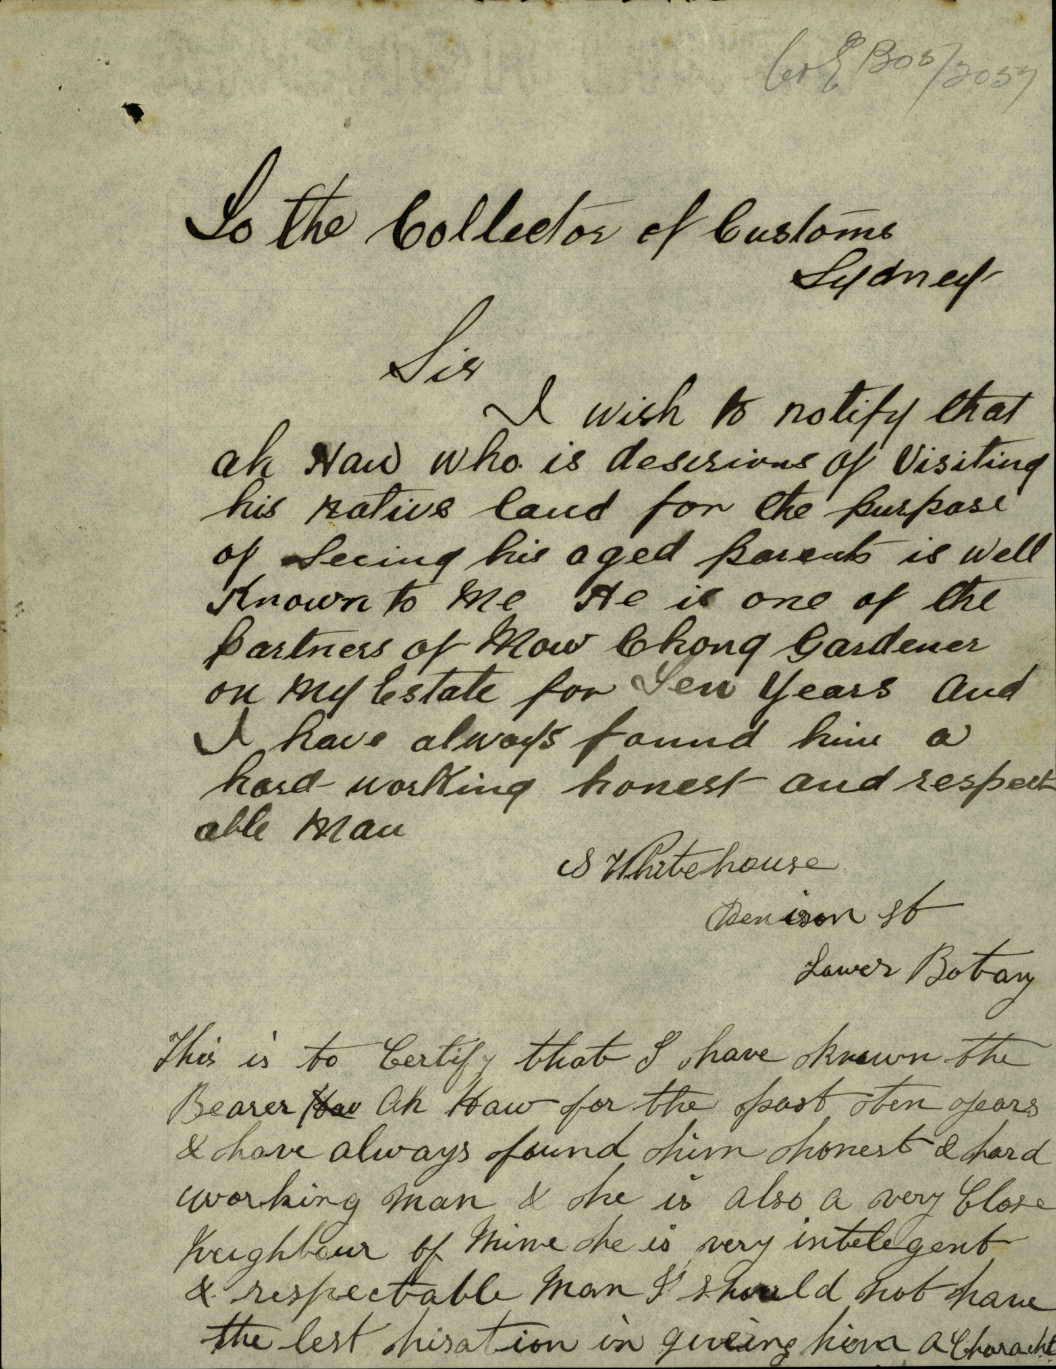 B05/2057
To the Collector of Customs
Sydney
Sir
I wish to notify that
ah Haw who is descrious of Visiting
his native land for the purpose
of Seeing his aged parents is well
Known to Me He is one of the
partners of Mow Chong Gardener
on My Estate for Ten Years and
I have always found him a
hard working honest and respect
able Man
S Whitehouse
Denison St
Lower Botany
This is to Certify that I have known the
Bearer Haw Ah Haw for the past ten years
& have always found him honest & hard
working man & he is also a very Close
Neighbour of Mine he is very intelegent
& respectable Man I should not have
the lest hisation in giveing him a Characte